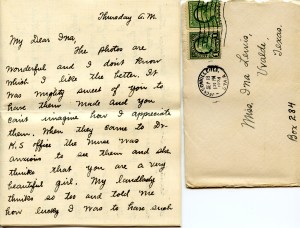 Thursday A.M.
My Dear Ina,
The photos are
wonderful and I don't know
which I like the better. It
was mighty sweet of you to
have them made and you
can't imagine how I appreciate
them. When they came to Dr.
M.S office the nurse was
anxious to see them and she
thinks that you are a very
beautiful girl. My landlady
thinks so too and told me
how lucky I was to have such
Miss Ina Lewis,
Uvalde,
Texas.
Box 284